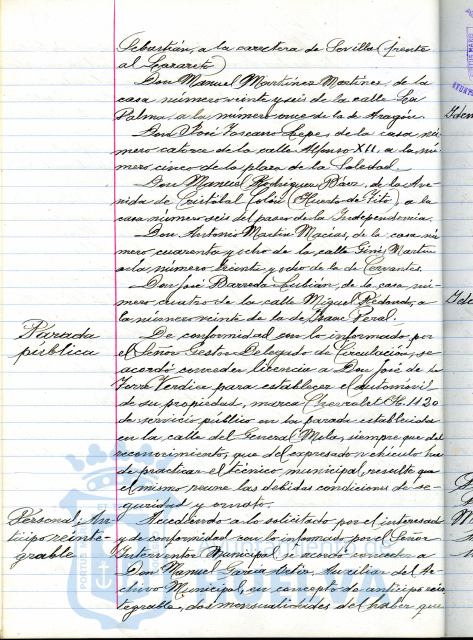 Sebastián, a la carretera de Sevilla (frente
al Lazareto)
Don Manuel Martínez Martínez, de la
casa número veinte y seis de la calle La
Palma, a la número once de la de Aragón.
Don José Toscano Lepe, de la casa nú-
mero catorce de la calle Alfonso XII, a la nú-
mero cinco de la plaza de la Soledad.
Don Manuel Rodríguez Báez, de la Ave-
nida de Cristóbal Colón (Huerto de Tito), a la
casa número seis del paseo de la Independencia.
Don Antonio Martín Macías, de la casa nú-
mero cuarenta y ocho de la calle Ginés Martín
a la número veinte y ocho de la de Cervantes.
Don José Barreda Rubián, de la casa nú-
mero cuatro de la calle Miguel Redondo, a
la número veinte de la de Isaac Peral.
Parada
pública
De conformidad con lo informado por
el Señor Gestor Delegado de Circulación, se
acordó conceder licencia a Don José de la
Torre Verdier para establecer el automóvil
de su propiedad, marca Chevrolet H. 1120
de servicio público en la parada establecida
en la calle del General Mola, siempre que del
reconocimiento, que del expresado vehículo ha
de practicar el técnico municipal, resulte que
el mismo reune las debidas condiciones de se-
guridad y ornato.
Personal: An-
ticipo reinte-
grable
Accediendo a lo solicitado por el interesado
y de conformidad con lo informado por el Señor
Interventor Municipal se acordó conceder a
Don Manuel García, Auxiliar del Ar-
chivo Municipal, en concepto de anticipo rein-
tegrable, dos mensualidades del haber que